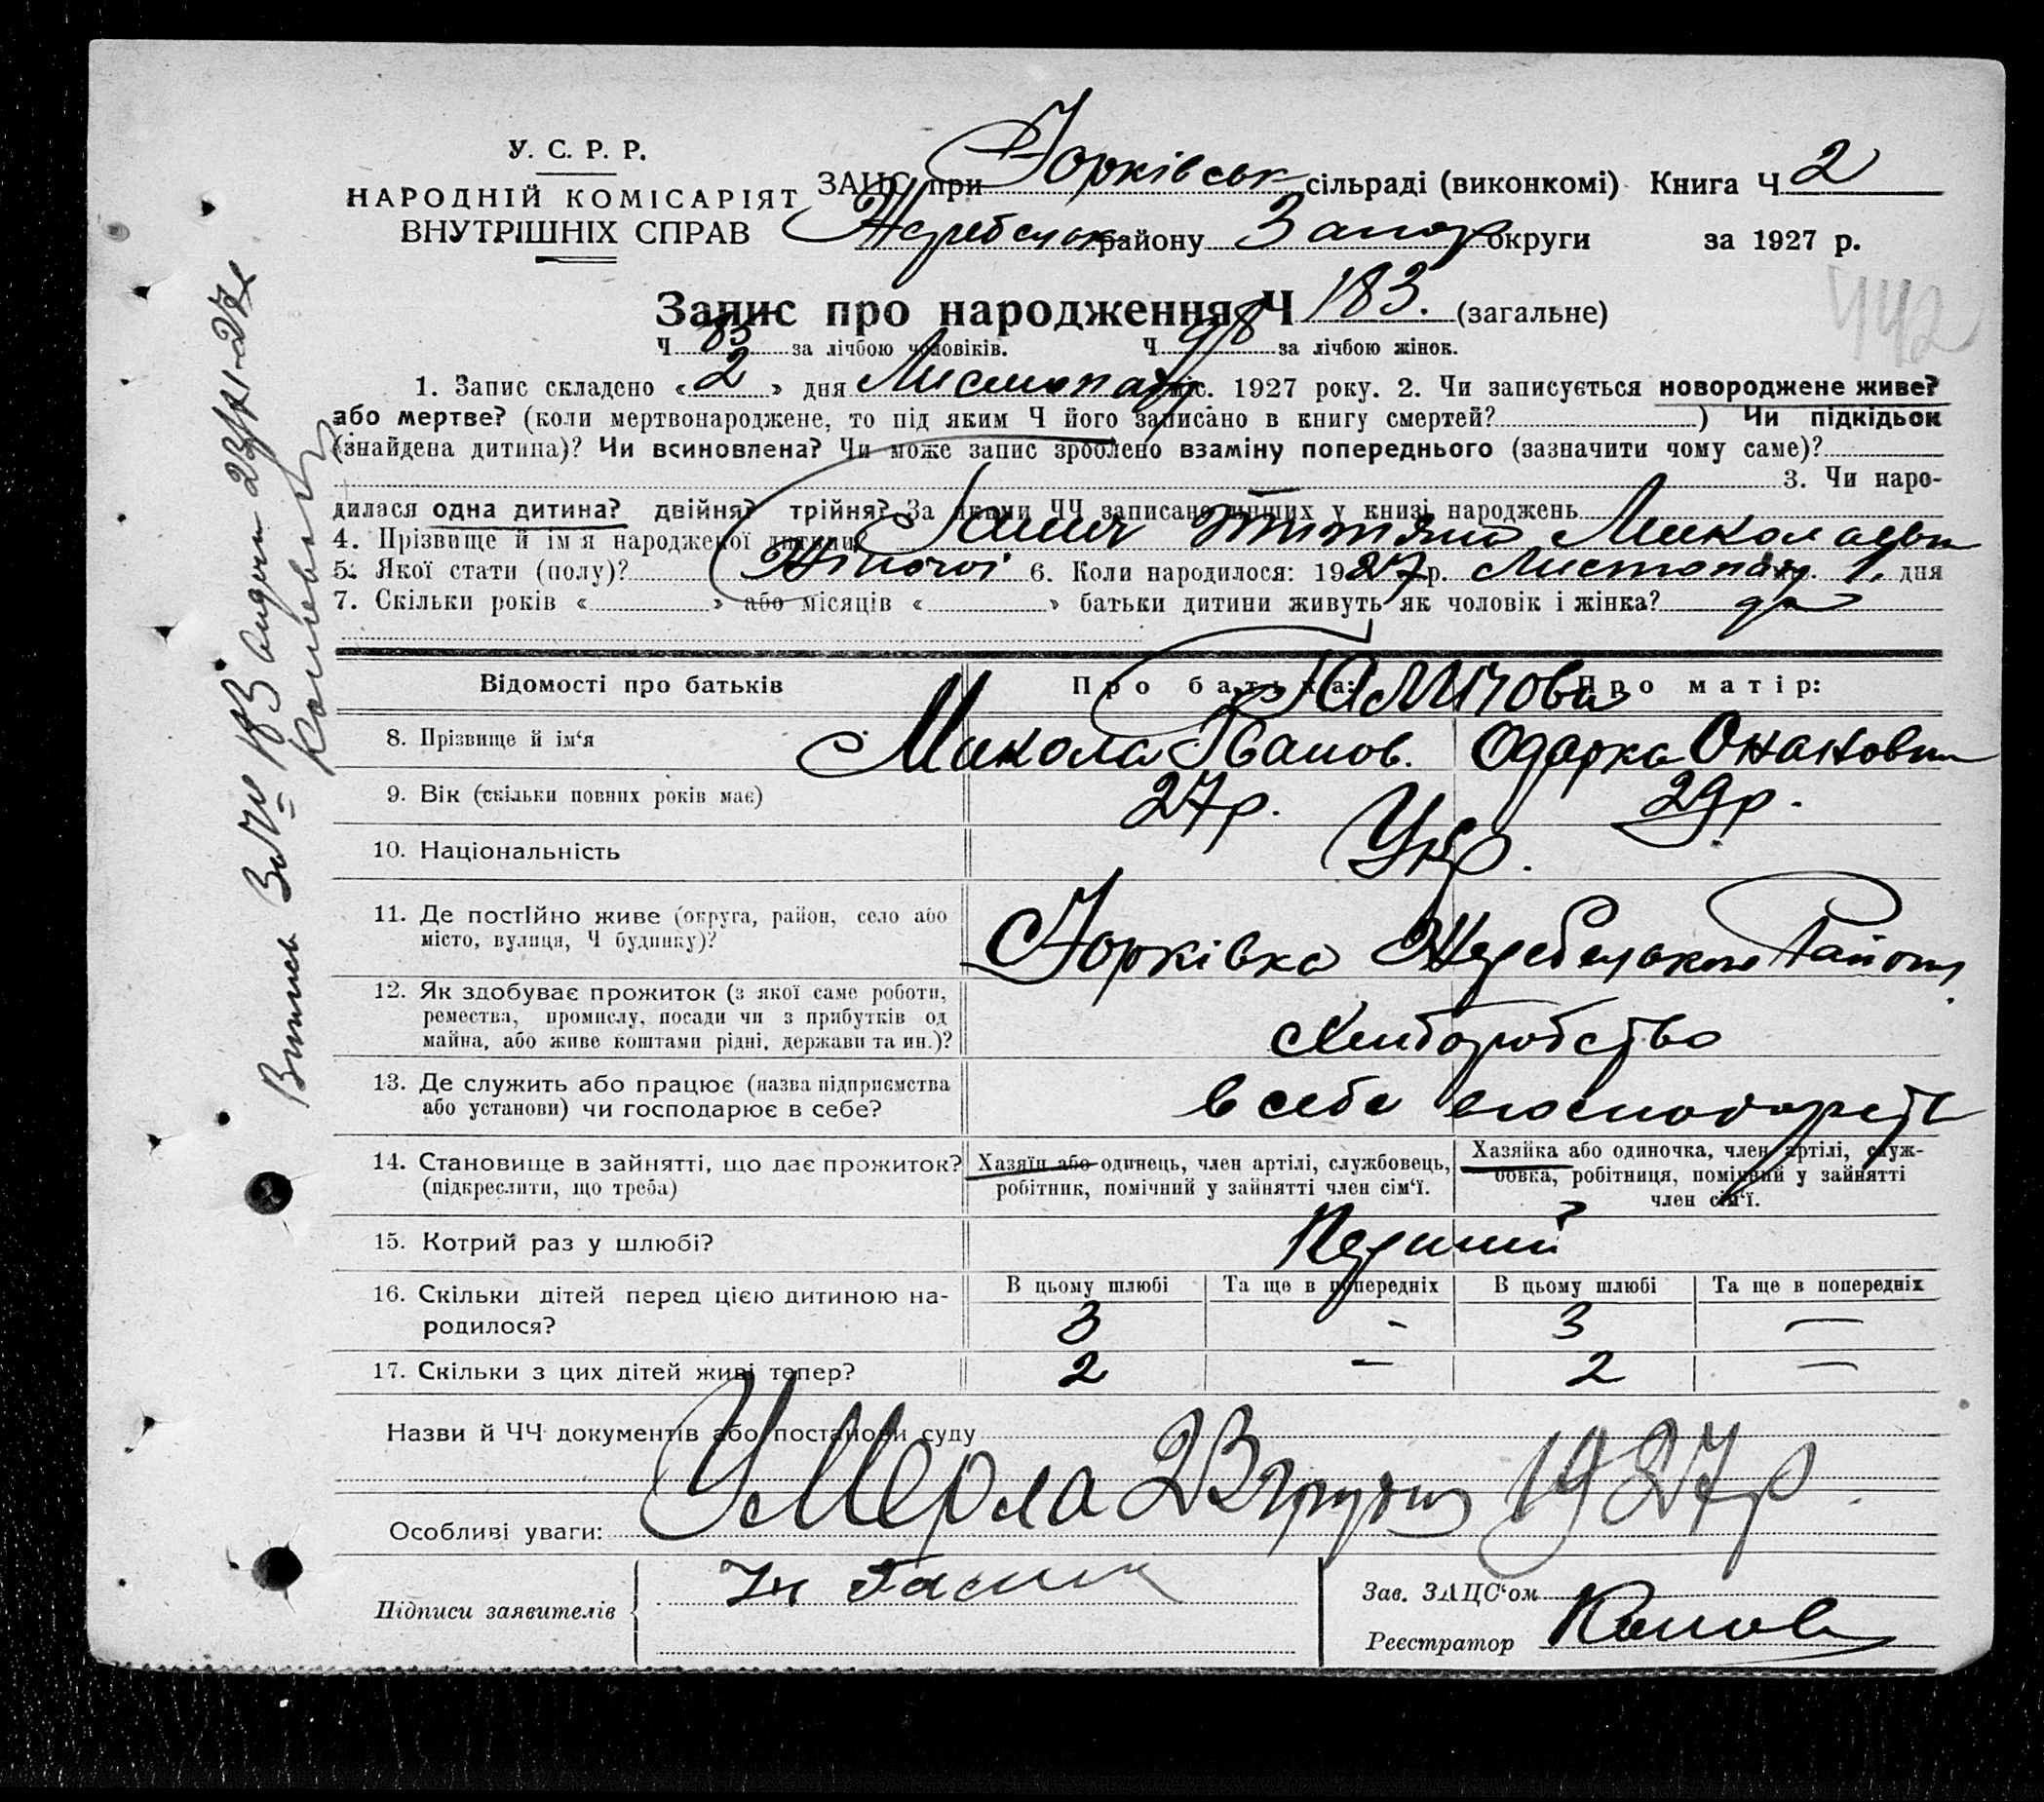 У. С. Р. Р.
НАРОДНІЙ КОМІСАРІЯТ
ВНУТРІШНІХ СПРАВ
ЗАЦС при Юрківськ сільраді (виконкомі) Книга Ч 2
Жеребецьк району Запор округи за 1927 р.
Запис про народження Ч 183. (загальне)
442
Ч 85 за лічбою чоловіків. Ч 98 за лічбою жінок.
1. Запис складено « 2 » дня Листопаду міс. 1927 року. 2. Чи записується новороджене живе?
або мертве? (коли мертвонароджене, то під яким Ч його записано в книгу смертей? ) Чи підкідьок
(знайдена дитина)? Чи всиновлена? Чи може запис зроблено взаміну попереднього (зазначити чому саме)?
3. Чи наро-
дилася одна дитина? двійня? трійня? За якими ЧЧ записано инших у книзі народжень
4. Прізвище й ім'я народженої дитини? Миколаєвн
5. Якої стати (полу)? Жіночої 6. Коли народилося: 1927 р. Листопаду 1. дня
7. Скільки років « » або місяців « » батьки дитини живуть як чоловік і жінка? да
Відомості про батьків Про батька: Про матір:
8. Прізвище й ім'я Микола Іванов. Одарка
9. Вік (скільки повних років має) 27р. 29р.
10. Національність Укр.
11. Де постійно живе (округа, район, село або
місто, вулиця, Ч будинку)?
Юрківка Жеребецького Району
12. Як здобуває прожиток (з якої саме роботи,
ремества, промислу, посади чи з прибутків од
майна, або живе коштами рідні, держави та ин.)?
Хліборобство
13. Де служить або працює (назва підприємства
або установи) чи господарює в себе?
в себе
14. Становище в зайнятті, що дає прожиток?
(підкреслити, що треба)
Хазяїн або одинець, член артілі, службовець,
робітник, помічний у зайнятті член сім'ї.
Хазяйка або одиночка, член артілі, служ-
бовка, робітниця, помічний у зайнятті
член сім'ї.
15. Котрий раз у шлюбі? Перший
16. Скільки дітей перед цією дитиною на-
родилося?
В цьому шлюбі Та ще в попередніх В цьому шлюбі Та ще в попередніх
3 - 3 —
17. Скільки з цих дітей живі тепер? 2 - 2 —
Назви й ЧЧ документів або постанови суду
Умерла 23 грудня 1927р.
Особливі уваги:
Підписи заявителів
Зав. ЗАЦС'ом
Реєстратор
Выпись За № 183